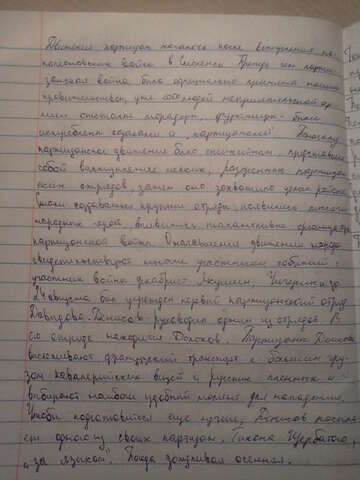 Движение партизан началось после вступления на-
полеоновских войск в Смоленск. Прежде чем парти-
занская война была официально принята нашим
правительством, уже 1000 людей неприятельской ар-
мии отсталые мародеры, фуражиры были
истреблены казаками и "партизанами". Вначале
партизанское движение было стихийным, представляло
собой выступление мелких, разрозненных партизан-
ских отрядов, затем оно захватило целые районы.
Стали создаваться крупные отряды, появились тысячи
народных героев, выявились талантливые организаторы
партизанской войны. О начале движения народа
свидетельствуют многие участники событий:
участник войны декабрист Якушкин,
24 августа был учрежден первый партизанский отряд
Давыдова. Денисов руководил одним из отрядов. В
его отряде находится Долохов. Партизаны Денисова
выслеживают французский транспорт с большим гру-
зом кавалерийских вещей и русских пленных и
выбирают наиболее удобный момент для нападения.
Чтобы подготовиться еще лучше, Денисов посыла-
ет одного из своих партизан, Тихона Щербатого,
"за языком". Погода дождливая осенняя.